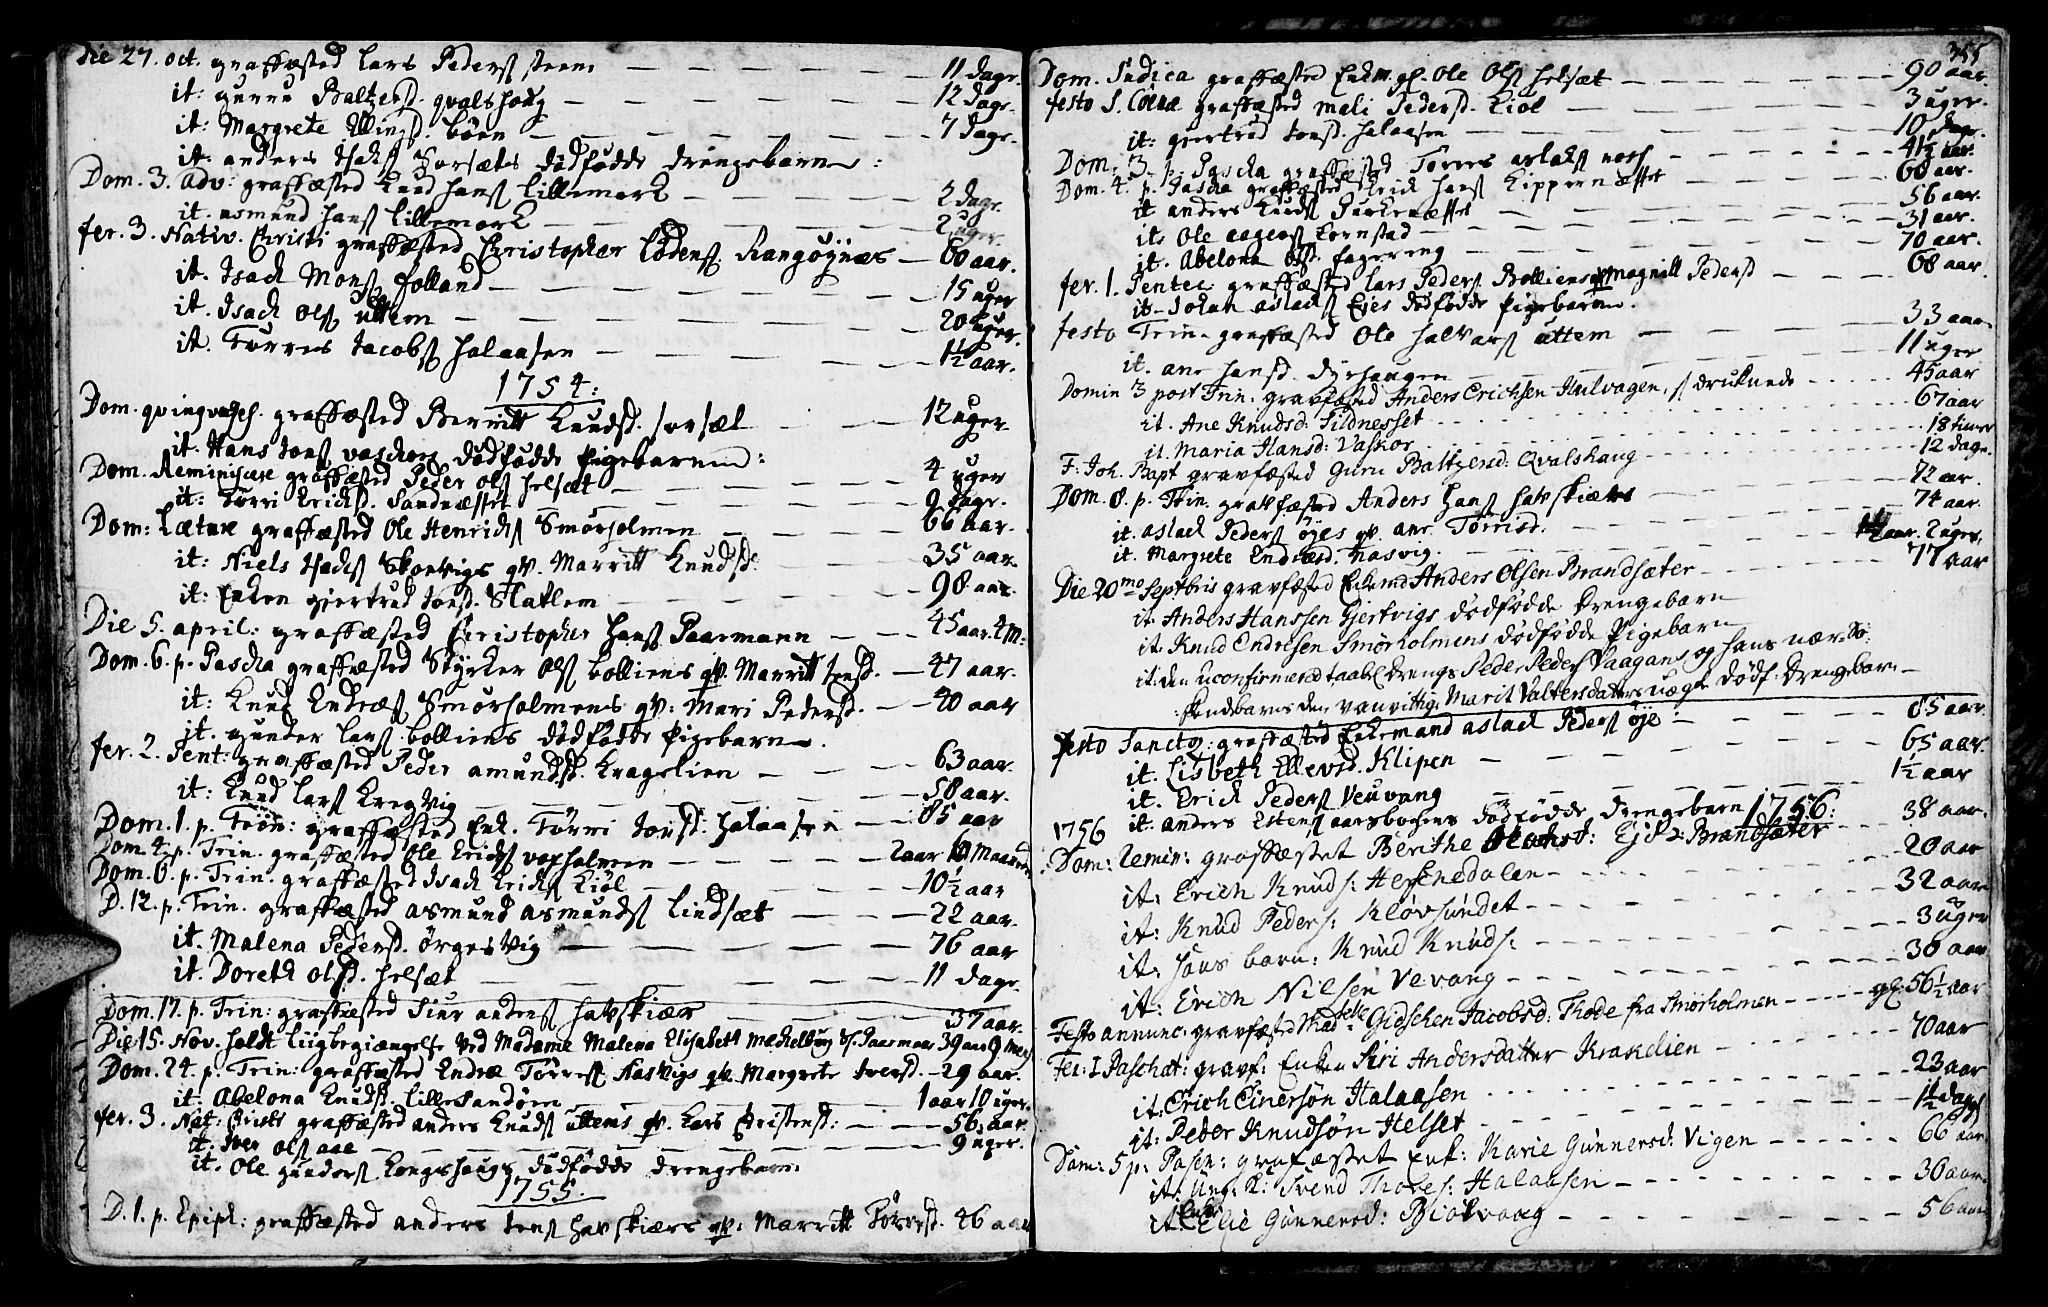 Die 27. Oct. graffæsted Lars Peders. Steens — 11 dage.
it: Guru Baltzersd. qvalshoug — 12 dage.
it: Margrete Ellingsd. böen — 7 dage.
it: anders Isaks. Sorsæts dödfödde drengebarn:
Dom. 3. adv: graffæsted Knud Hans. Lillemork — 2 dage.
it. asmund Hans. Lillemork — 2 uger.
fer. 3. Nativ. Christi graffæsted Christopher Lödens. Rangöynæs — 60 aar.
it. Isach Mons. folland — 15 uger
it. Isach Ols. uttem — 20 uger.
it. Torres Jacobs. Halaasen — 1½ aar.
1754:
Dom. qvinqvages. graffæsted Berritt Knudsd. sorsæt — 12 uger.
it. Hans Jons. vaschors dödfödde Pigebarn:
Dom. Reminiscere graffæsted Peder Ols. Helsæt — 4 uger
it: Torri Erichsd. Sandnæsset — 9 dage.
Dom: Lætare graffæsted Ole Henrichs. Smörholmen — 66 aar.
it: Niels Isachs. Skorvigs qv. Marritt Knudsd. — 35 aar.
it: Enken Giertrud Jonsd. Slatlem — 98 aar.
Die 5. april: graffæsted Christopher Hans. Paarmann — 45 aar. 4 M:
Dom. 6. p. Pascha graffæsted Styrker Ols. bolliens qv. Marritt Jensd. — 47 aar.
it: Knud Endres. Smörholmens qv: Mari Pedersd. — 40 aar
it. Gunder Lars. bolliens dödfödde Pigebarn.
fer. 2. Pent: graffæsted Peder amunds. Kragelien — 63 aar.
it: Knud Lars. Kregvig — 58 aar.
Dom. 1. p. Trin: graffæsted Enk. Törri Jonsd. Halaasen — 85 aar
Dom. 4. p. Trin. graffæsted Ole Erichs. vogholmen — 2 aar Maaneder
Dom. 6. p. Trin. graffæsted Isach Erichs. Kiöl — 10½ aar
D. 12. p. Trin. graffæsted asmund asmunds. Lindsæt — 22 aar.
it. Malena Pedersd. örgesvig — 76 aar
it. Doreth Olsd. Helsæt — 11 dage.
Dom. 17. p. Trin: graffæsted Siur anders. Havskiær — 37 aar.
Die 15. Nov. holdt Liigbegiængelse ved Madame Malena Elisabeth Mechelburg Paarman 39 aar 9 mdr
Dom. 24. p. Trin: graffæsted Endre Törres. Nasvigs qv. Margrete Iversd. — 29 aar.
it. Abelona Knudsd. Lillesandöen — 1 aar 10 uger.
fer. 3. Nat: Christi graffæsted anders Knuds. uttems qv. Kari Christensd: — 56 aar.
it. Iver Ols. aae — 9 uger.
it. Ole Gunders. Kongshougs dödfödde drengebarn.
1755.
D. 1. p. Epiph: graffæsted anders Jens. Havskiærs qv: Marritt Törresd. 46 aar
355
Dom. Judica graffæsted Enkm. gl. Ole Ols. Helsæt — 90 aar.
festo S. Coenæ graffæsted Mali Pedersd. Kiöl — 3 uger.
it: giertrud Jonsd. Halaasen — 10 dage.
Dom. 3. p. Pascha graffæsted Törres aslaks. — 41½ aar.
Dom. 4. p. Pascha graffæsted Erich Hans. Kippernæsset — 60 aar.
it anders Knuds. Purkenæsset — 56 aar.
it: Ole aagens. Kornstad — 31 aar.
it. Abelona Olsd. fagereng — 70 aar.
fer. 1. Pentec graffæsted Lars Peders. Bolliens qv Magnill Pedersd — 68 aar.
it. Johan aslachs. Eies dödfödde Pigebarn.
festo Trin. graffæsted Ole Halvors. uttem — 33 aar
it. ane Hansd. dyrhaugen — 11 uger
Domin 3 post Trin. gravfæsted Anders Erichsen Hulvagen, druknede — 45 aar
it. Ane Knudsd: Sildnesset — 67 aar
it. Maria Hansd: Vaskor — 18 timer
F. Joh. Bapt gravfæsted Guru Baltzersd: Qvalshaug — 12 dage.
Dom. 8. p. Trin. gravfæsted Anders Hans. Havskiærs — 72 aar.
it. aslach Peders. öyes qv. ane Törrisd. — 74 aar.
it. Margrete Endresd. Nasvig. — aar. 2 uger.
Die 20mo Septbris gravfæsted Enkemd Anders Olsen Brandsæter — 77 aar
it. Anders Hanssen Gjertvigs dödfödde Drengebarn
it. Knud Endresen Smörholmens dödfödde Pigebarn
it: den uconfirmered taabl. drengs Peder Peders. Vaagans og hans nær-
skendebarns den vanvittige Marit Valtersdaters uægte dödf: Drengebarn —
festo Sanctor: graffæsted Enkemand aslach Peders. öye: — 85 aar.
it. Lisbeth Ellevsd. Klipen — 65 aar.
it. Erich Peders. Veuvang — 1½ aar
it. anders Estens. aarsbogens dödfödde drengebarn 1756:
1756
Dom: Remin: graffæstet Berithe Ejde Brandsæter — 38 aar.
it: Erich Knuds: Hegnedalen — 20 aar
it: Knud Peders: Klövsundet — 32 aar
it: Hans barn: Knud Knuds: — 3 uger
it: Erich Nielsen Vevang — 30 aar
Festo annunc: gravfæsted Mad: Gidschen Jacobsd: Thode fra Smörholmen — gl: 56½ aar
Fer: I Paschat: gravf: Enken Siri Andersdatter Krakelien — 70 aar
it: Erich Einersön Halaasen — 23 aar
it: Peder Knudsön Helset — dage
Dom: 5 p: Pasch: grafæstet Enk: Marie Gunnersd: Vigen — 66 aar.
it: Ung. k: Svend Thores: Halaasen — 30 aar.
it: Enke Elie Gunnersd: Biölvang — 56 aar